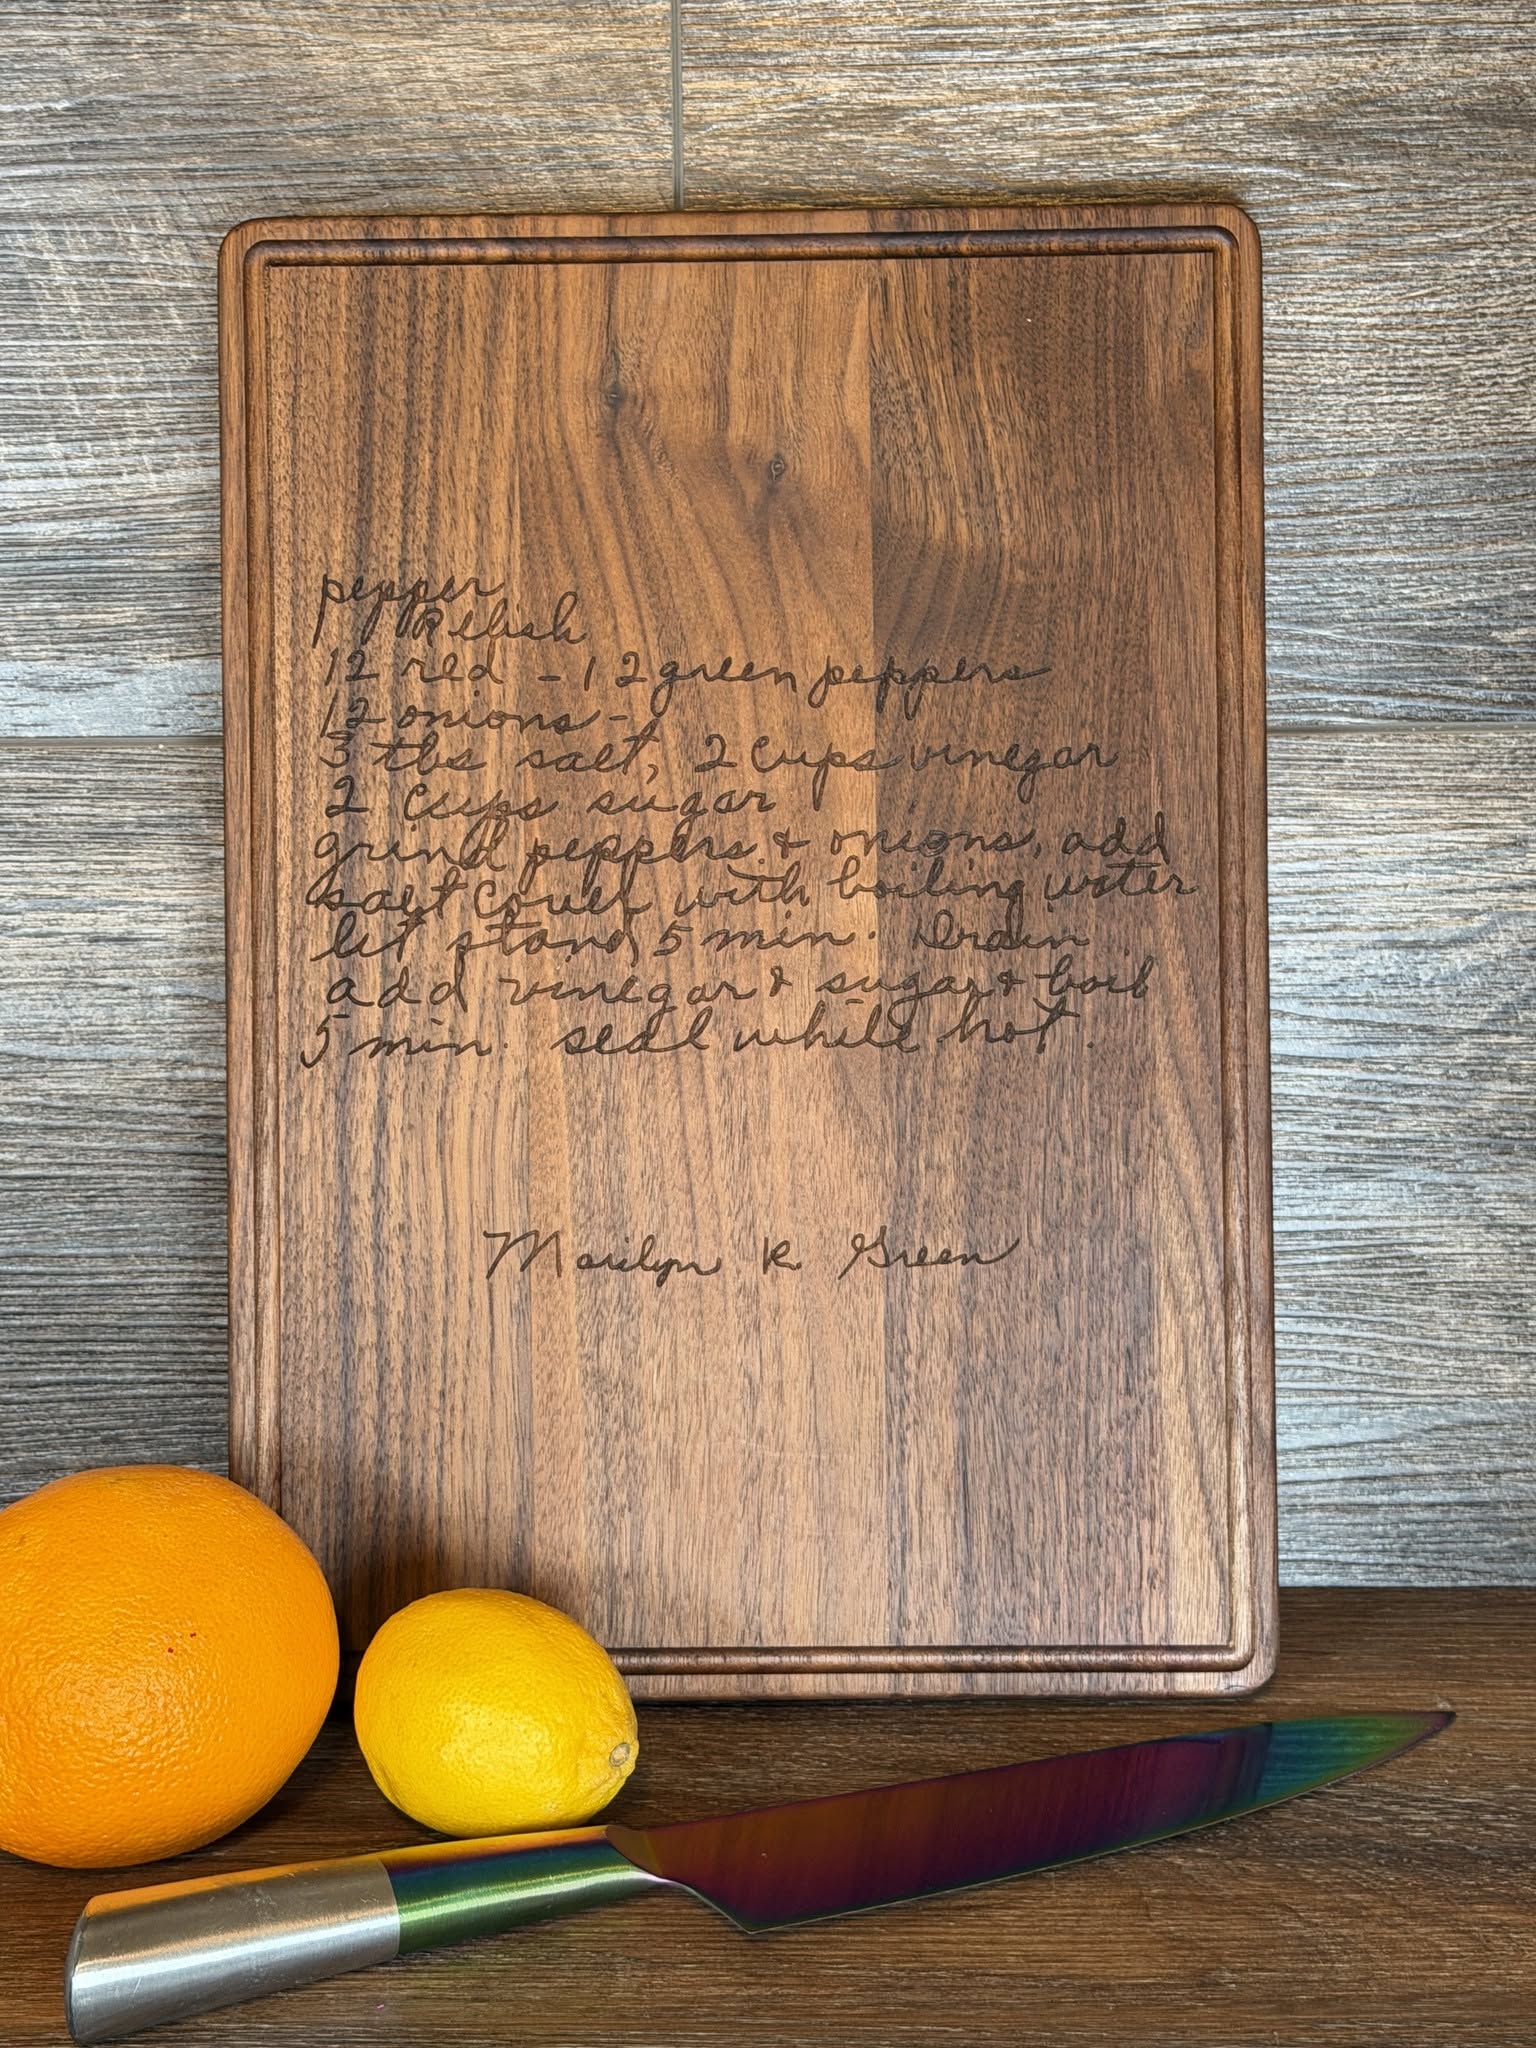 pepper
Relish
12 red - 12 green peppers
12 onions -
3 tbs salt, 2 cups vinegar
2 cups sugar
grind peppers & onions, add
salt cover with boiling water
let stand 5 min. Drain
add vinegar & sugar & boil
5 min. seal while hot.
Marilyn R. Green